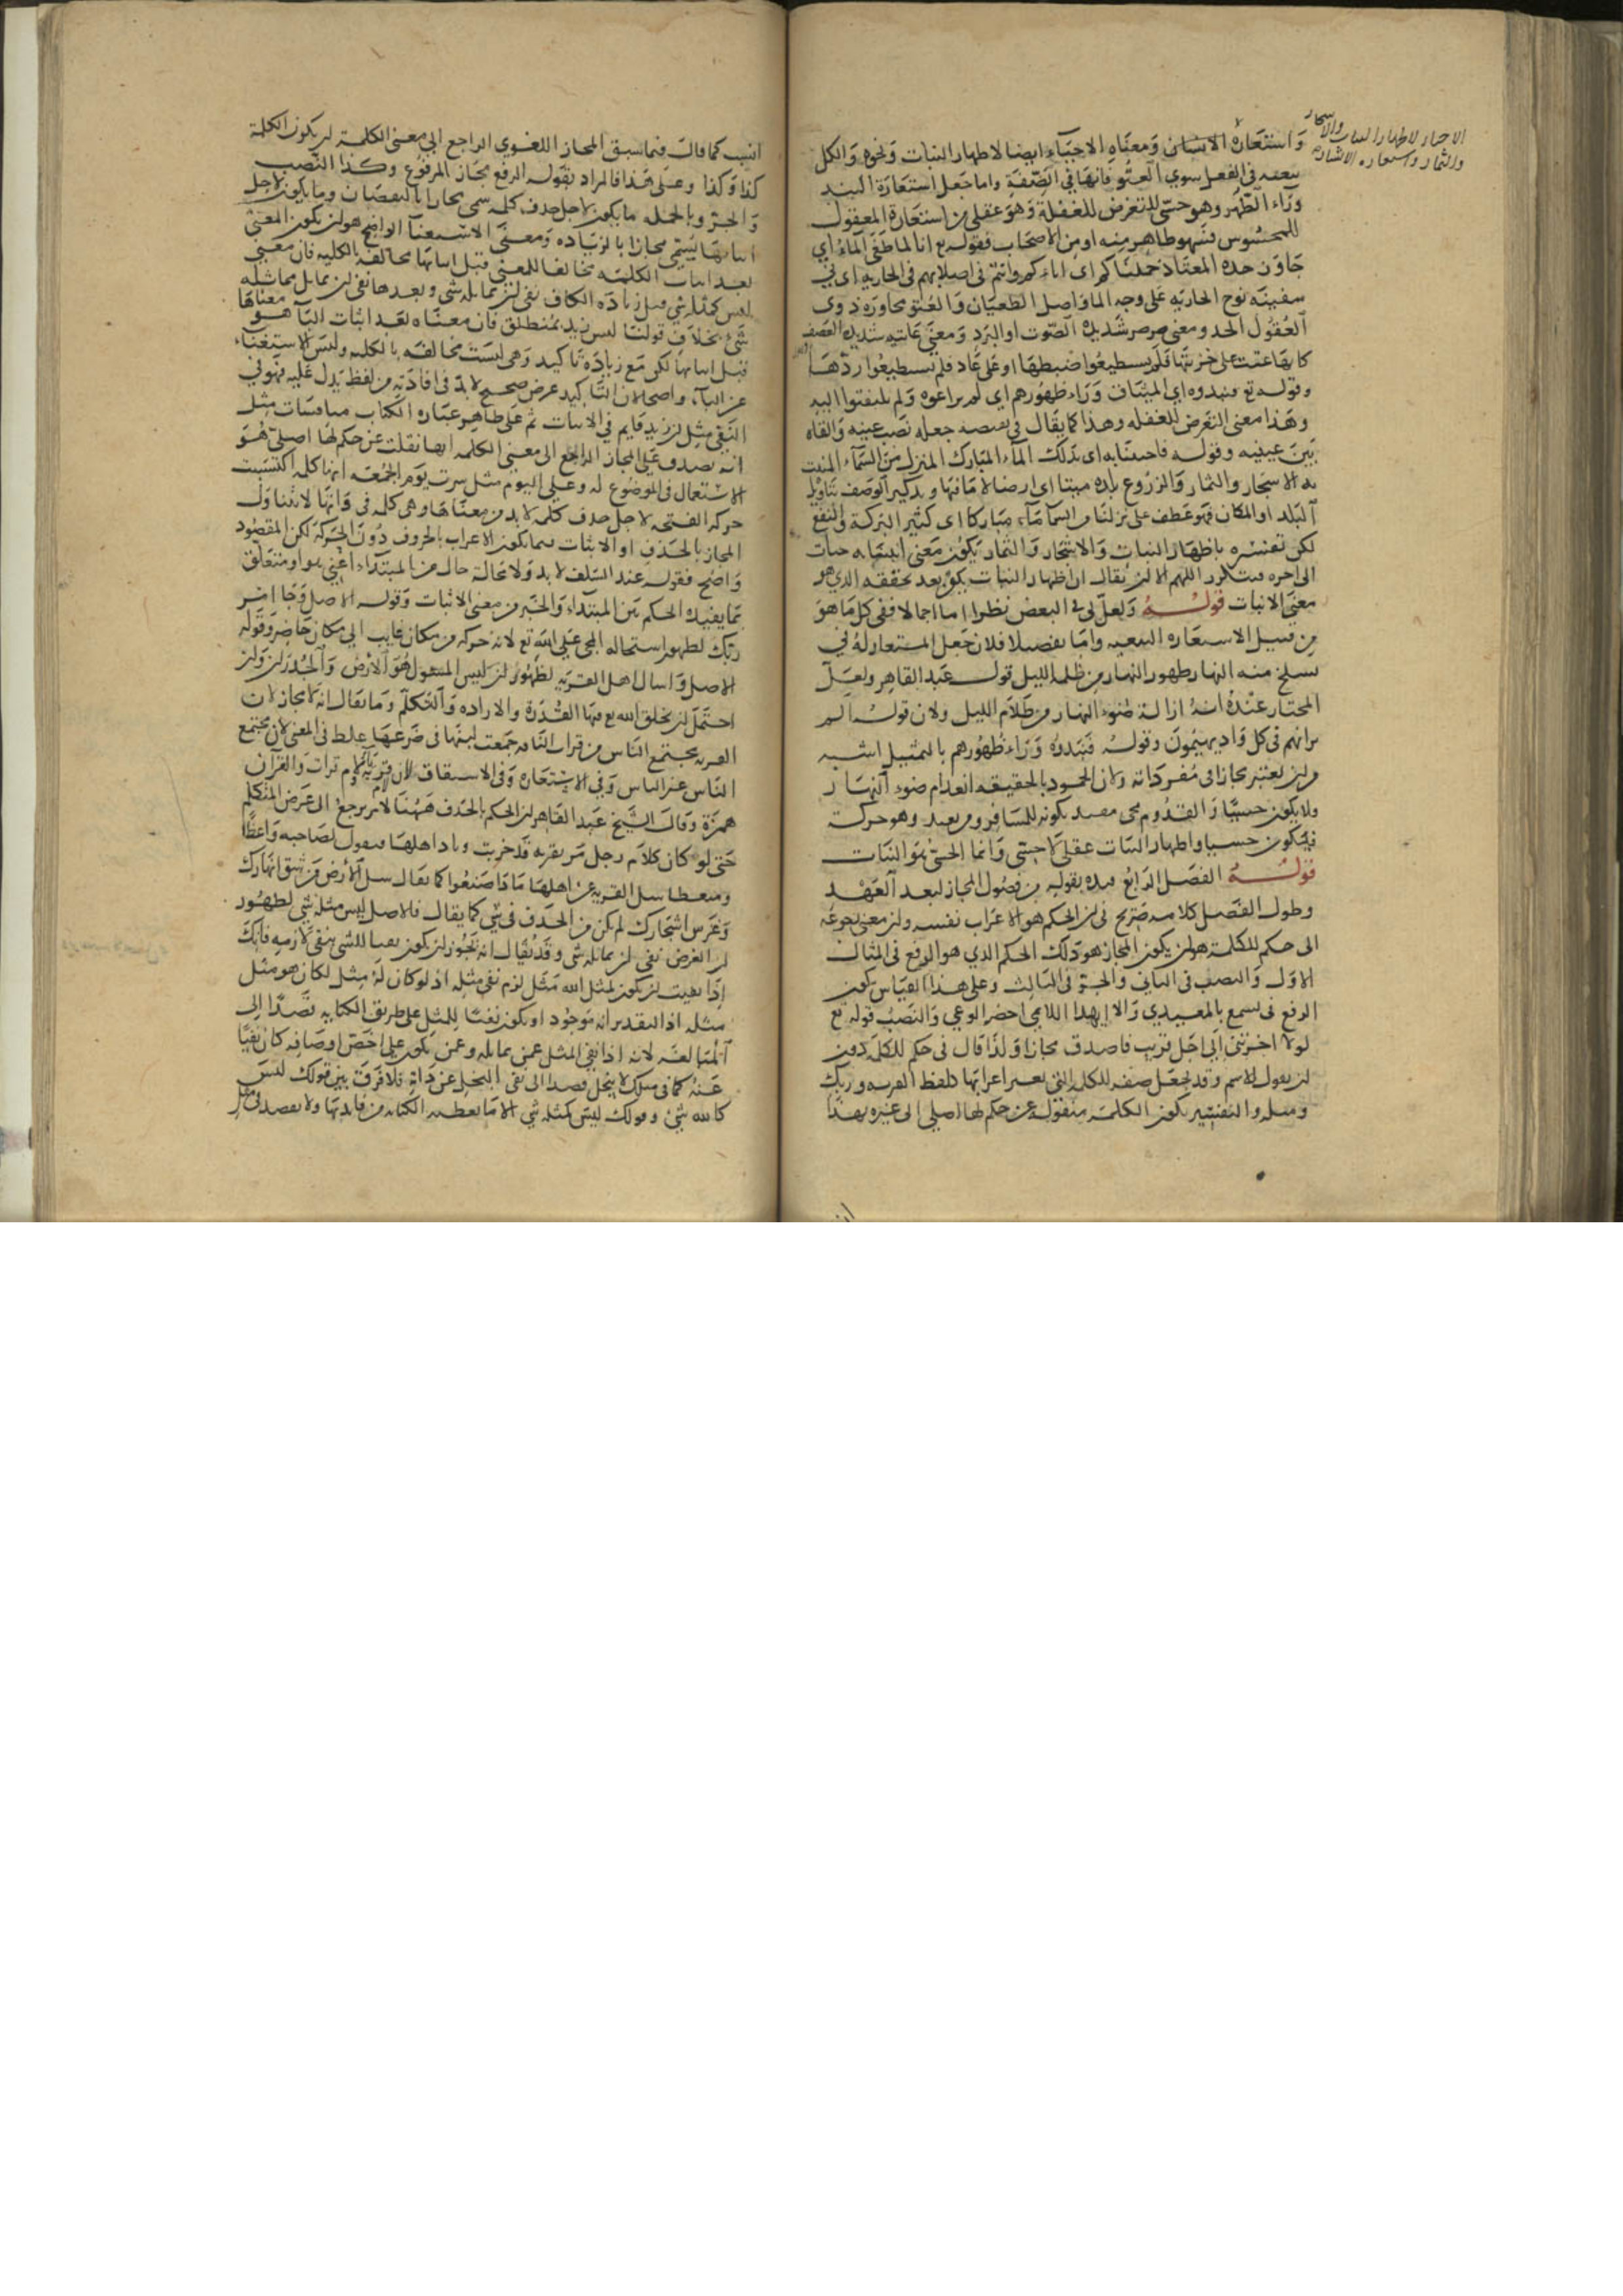 واستعارة الانسان ومعناه الاحياء ايضا لاظهار النبات ونحوه والكل
الاحياء لاظهار النبات والاشجار
والثمار واستعاره الاشاره
تبعيه في الفعل سوي العتو فانها في الصفة واما جعل استعارة النبذ
وراء الظهر وهو حسي للتعرض للغفلة وهو عقلي من استعارة المعقول
للمحسوس فسهو ظاهر منه او من الاصحاب فقوله تع انا لما طغى الماء اي
جاوز حده المعتاد حملناكم اى اباءكم وانتم في اصلابهم في الجاريه اى في
سفينه نوح الجاريه على وجه الما واصل الطغيان والعتو مجاوزه ذوي
العقول الحد ومعنى صرصر شديده الصوت او البرد ومعنى عاتيه شديده العصف
كانها عتت على خزنتها فلم يستطيعوا ضبطها او على عاد فلم يستطيعوا ردها
وقوله تع فنبذوه اي الميثاق وراء ظهورهم اى لم يراعوه ولم يلتفتوا اليه
وهذا معنى التعرض للغفله وهذا كما يقال في نقيضه جعله نصب عينيه والقاه
بين عينيه وقوله فاحيينا به اى بذلك الماء المبارك المنزل من السماء المنبت
به الاشجار والثمار والزروع بلده ميتا اى ارضا لا ما فيها وتذكير الوصف بتاويل
البلد او المكان فهو عطف على نزلنا من السما ماء مباركا اى كثير البركة والنفع
لكن تفسيره باظهار النبات والاشجار والثمار يكون معنى انبتنا به جنات
الى اخره فيتكرر اللهم الا ان يقال ان اظهار النبات يكون بعد تحققه الذي هو
معنى الانبات قوله ولعل لي في البعض نظرا اما اجمالا ففي كل ما هو
من قبيل الاستعاره التبعيه واما تفصيلا فلان جعل المستعار له في
نسلخ منه النهار ظهور النهار من ظلمه الليل قول عبد القاهر ولعل
المختار عنده انه ازالة ضوء النهار من ظلام الليل ولان قوله الم
تر انهم في كل واد يهيمون وقوله فنبذوه وراء ظهورهم بالتمثيل اشبه
من ان يعتبر مجازا في مفرداته ولان الخمود بالحقيقه انعدام ضوء النهار
ولا يكون حسيا والقدوم مجى مقيد بكونه للمسافر ومن بعيد وهو حركة
فيكون حسيا واظهار النبات عقلي لا حسي وانما الحسي هو النبات
قوله الفصل الرابع قيده بقوله من فصول المجاز لبعد العهد
وطول الفصل كلامه صريح في ان الحكم هو الاعراب نفسه وان معنى رجوعه
الى حكم للكلمة هو ان يكون المجاز هو ذلك الحكم الذي هو الرفع في المثال
الاول والنصب في الثاني والجر في الثالث وعلى هذا القياس يكون
الرفع في تسمع بالمعيدي والا ايهذا اللايمي احضر الوغي والنصب في قوله تع
لولا اخرتني الى اجل قريب فاصدق مجازا ولذا قال في حكم للكلمة دون
ان يقول للاسم وقد يجعل صفه للكلمه التي تغير اعرابها كلفظ القريه وربك
ومثله والتفسير بكون الكلمة منقولة عن حكم لها اصلي الى غيره بهذا
انسب كما قال فيما سبق المجاز اللغوي الراجع الى معنى الكلمة ان يكون الكلمة
كذا وكذا وعلى هذا فالمراد بقوله الرفع مجاز المرفوع وكذا النصب
والجر وبالجمله ما يكون لاجل حذف كلمه سمى مجازا بالنقصان وما يكون لاجل
اثباتها يسمى مجازا بالزياده ومعنى الاستغناء الواضح هو ان يكون المعنى
بعد اثبات الكلمه مخالفا للمعنى قبل اثباتها مخالفة بالكليه فان معنى
ليس كمثله شي قبل زياده الكاف نفي ان يماثله شى وبعدها نفي ان يماثل مماثله
شي بخلاف قولنا ليس زيد بمنطلق فان معناه بعد اثبات الباء هو معناها
قبل اثباتها لكن مع زيادة تاكيد وهى ليست مخالفه بالكليه وليس الاستغناء
عن الباء واضحا لان التاكيد غرض صحيح لابد في افادته من لفظ يدل عليه فهو في
النفي مثل ان زيد قايم في الاثبات ثم على ظاهر عباره الكتاب مناقشات مثل
انه يصدق على المجاز الراجع الى معنى الكلمه انها نقلت عن حكم لها اصلي هو
الاستعمال في الموضوع له وعلى اليوم مثل سرت يوم الجمعه انها كله اكتسبت
حركه الفتحه لاجل حذف كلمه لابد من معناها وهى كلمه في وانها لا تتناول
المجاز بالحذف او الاثبات فيما يكون الاعراب بالحروف دون الحركة لكن المقصود
واضح فقوله عند السلف لابد ولا محالة حال من المبتداء اعني هو او متعلق
بما يفيده الحكم بين المبتداء والخبر من معنى الاثبات وقوله الاصل وجا امر
ربك لظهور استحاله المجى على الله تع لانه حركه من مكان غايب الى مكان حاضر وقوله
الاصل واسال اهل القريه لظهور ان ليس المسئول هو الارض والجدران وان
احتمل ان يخلق الله تع فيها القدرة والاراده والتكلم وما يقال انه لا مجاز لان
القريه مجتمع الناس من قرات الناقه جمعت لبنها في ضرعها غلط في المعنى لان مجتمع
الناس غير الناس وفي الاستعاره وفي الاشتقاق لان قريه يائي ولام قرات والقران
همزة وقال الشيخ عبد القاهر ان الحكم بالحذف ههنا لامر يرجع الى غرض المتكلم
حتى لو كان كلام رجل مر بقريه قد خربت وباد اهلها فيقول لصاحبه واعظا
ومتعظا سل القريه عن اهلها ما ذا صنعوا كما يقال سل الارض من شق انهارك
وغرس اشجارك لم يكن من الحذف في شي كما يقال فالاصل ليس مثله شي لظهور
ان الغرض نفي ان يماثله شى وقد يقال انه يجوز ان يكون نفيا للشي بنفي لازمه فانك
اذا نفيت ان يكون لمثل الله مثل لزم نفي مثله اذ لو كان له مثل لكان هو مثل
مثله اذ التقدير انه موجود او يكون نفيا للمثل على طريق الكنايه قصدا الى
المبالغه لانه اذا نفى المثل عمن يماثله وعمن يكون على اخص اوصافه كان نفيا
عنه كما في مثلك لا يبخل قصدا الى نفى البخل عن ذاته فلا فرق بين قولك ليس
كالله شي وقولك ليس كمثله شي الا ما تعطيه الكنايه من فايدتها ولا يقصد في مثل